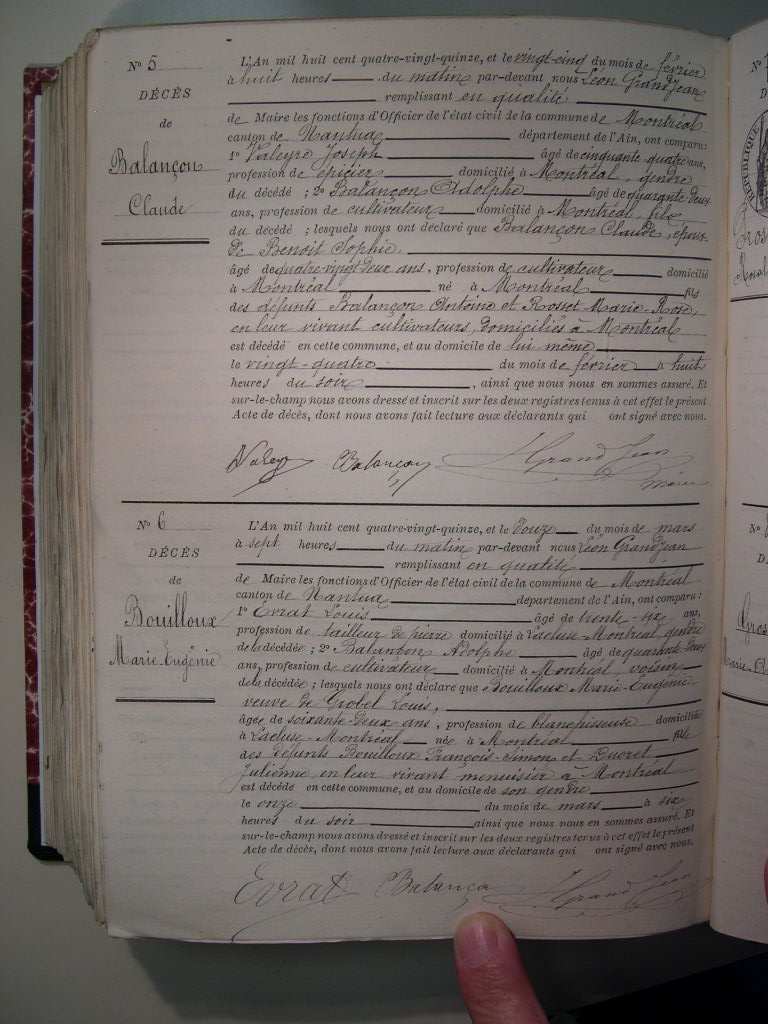 No 5
DÉCÈS
de
Balançon
Claude
L'An mil huit cent quatre-vingt-quinze, et le vingt-cinq du mois de février
à huit heures du matin par-devant nous Léon Grandjean
remplissant en qualité
de Maire les fonctions d'Officier de l'état civil de la commune de Montréal
canton de Nantua département de l'Ain, ont comparu:
1o Valeyre Joseph âgé de cinquante quatre ans,
profession de épicier domicilié à Montréal, gendre
du décédé; 2o Balançon Adolphe âgé de quarante deux
ans, profession de cultivateur domicilié à Montréal, fils
du décédé; lesquels nous ont déclaré que Balançon Claude, époux
de Benoit Sophie.
âgé de quatre-vingt deux ans, profession de cultivateur domicilié
à Montréal né à Montréal fils
des défunts Balançon Antoine et Rosset Marie-Rose,
en leur vivant cultivateurs, domiciliés à Montréal
est décédé en cette commune, et au domicile de lui même
le vingt-quatre du mois de février à huit
heures du soir, ainsi que nous nous en sommes assuré. Et
sur-le-champ nous avons dressé et inscrit sur les deux registres tenus à cet effet le présent
Acte de décès, dont nous avons fait lecture aux déclarants qui ont signé avec nous.
Valeyre Balançon L Grand Jean
maire
No 6
DÉCÈS
de
Bouilloux
Marie-Eugénie
L'An mil huit cent quatre-vingt-quinze, et le douze du mois de mars
à sept heures du matin par-devant nous Léon Grandjean
remplissant en qualité
de Maire les fonctions d'Officier de l'état civil de la commune de Montréal
canton de Nantua département de l'Ain, ont comparu:
1o Evrat Louis âgé de trente-six ans,
profession de tailleur de pierre domicilié à Lacluse-Montréal, gendre
de la décédée; 2o Balançon Adolphe âgé de quarante deux
ans, profession de cultivateur domicilié à Montréal, voisin
de la décédée; lesquels nous ont déclaré que Bouilloux Marie-Eugénie
veuve de Grobel Louis,
âgée de soixante-deux ans, profession de domiciliée
à Lacluse-Montréal née à Montréal fille
des défunts Bouilloux François-Simon et Ducret
Julienne, en leur vivant menuisier à Montréal
est décédée en cette commune, et au domicile de son gendre
le onze du mois de mars à six
heures du soir ainsi que nous nous en sommes assuré. Et
sur-le-champ nous avons dressé et inscrit sur les deux registres tenus à cet effet le présent
Acte de décès, dont nous avons fait lecture aux déclarants qui ont signé avec nous.
Evrat Balançon L Grand Jean